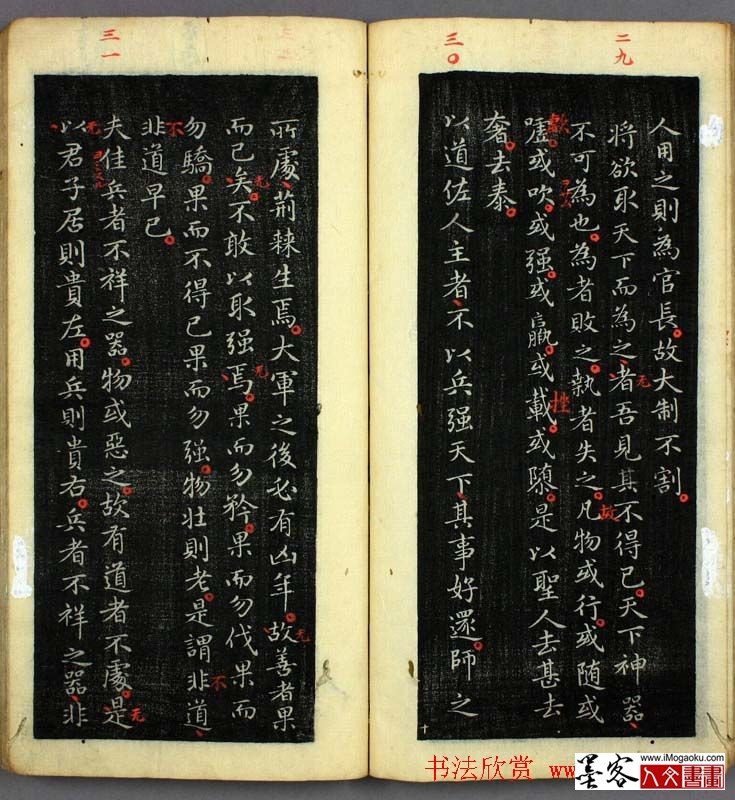 二九
三〇
人用之則為官長。故大制不割。
將欲取天下而為之、者吾見其不得已。天下神器、
无
不可為也。為者敗之。執者失之。凡物或行。或随或
故
噓。或吹。或强。或羸。或載。或隳。是以聖人去甚去
歔
挫
奢。去泰。
以道佐人主者、不以兵强天下、其事好還。師之
三一
所處、荊棘生焉。大軍之後必有凶年。故善者果
无
而已矣。不敢以取强、焉。果而勿矜。果而勿伐果而
无
无
勿驕。果而不得已果而勿强。物壯則老。是謂非道、
不
非道早已。
不
夫佳兵者不祥之器。物或惡之。故有道者不處。是
无
以君子居則貴左。用兵則貴右。兵者不祥之器、非
无
书法欣赏 ww
墨客
www.iMogaoku.com
人文書畫